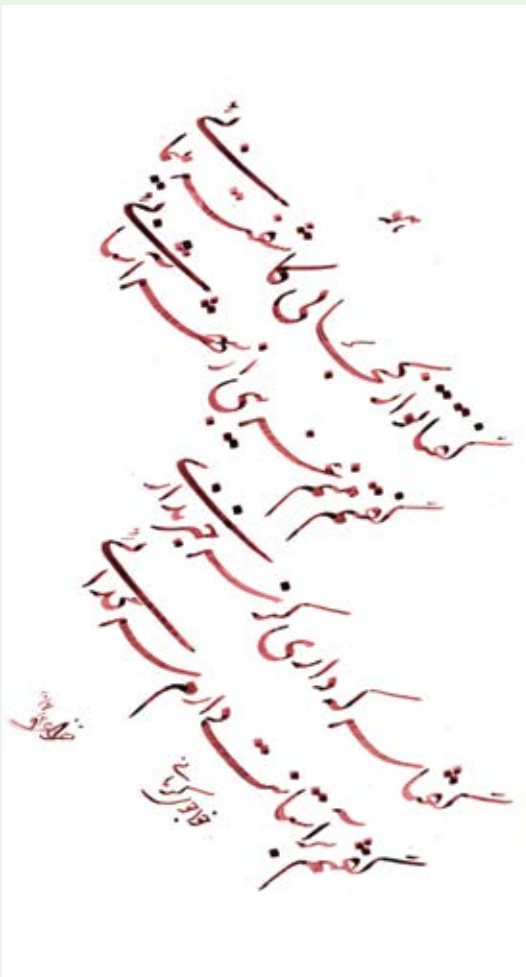 هو
گفتا تو از کجائی کاشفته می نمائی
گفتم منم غریبی از شهر آشنائی
گفتا سر که داری کز سر خبر نداری
گفتم بر آستانت دارم سر گدائی
خواجوی کرمانی